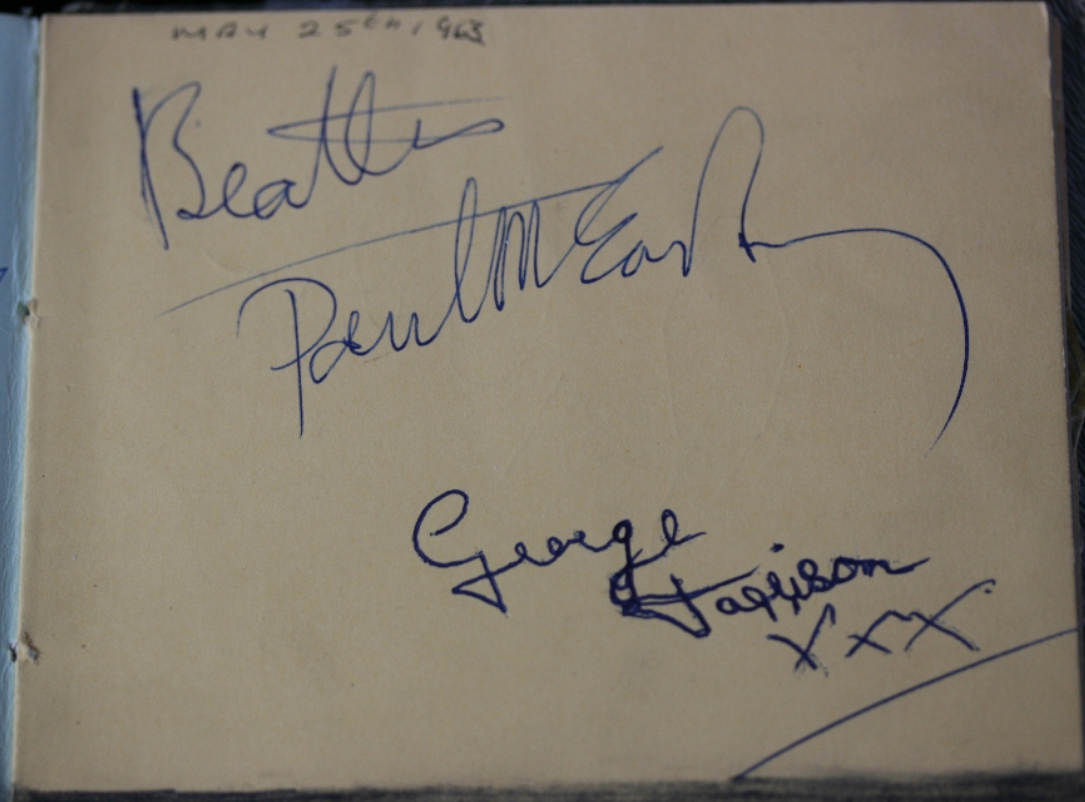 MAY 25th 1963
Beatles
Paul McCartney
George Harrison
XXX